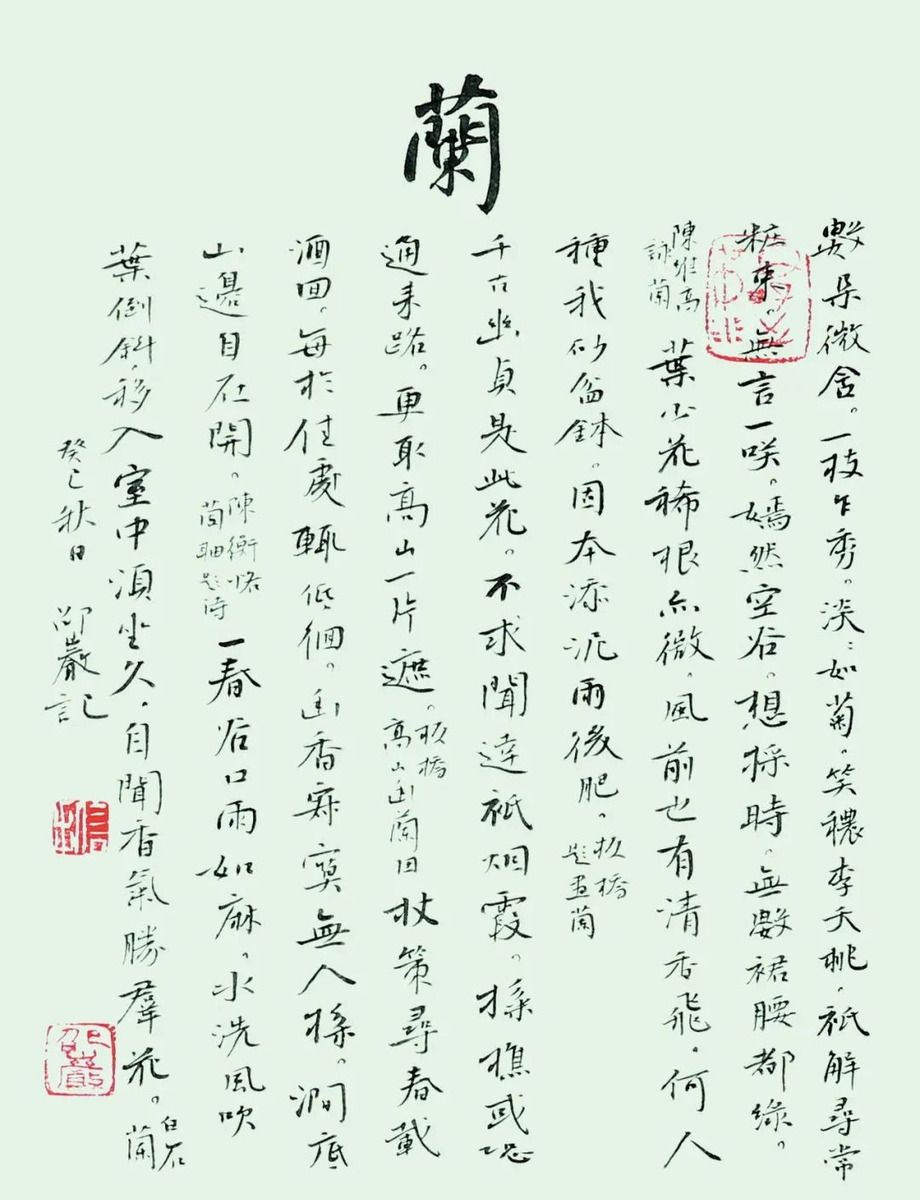 蘭
數朵微含。一枝乍秀。淡:如菊。笑穠李夭桃。祇解尋常
粧束。無言一咲。嫣然空谷。想採時。無數裙腰都綠。
陳維高
詠蘭
葉少花稀根亦微。風前也有清香飛。何人
種我砂盆鉢。因本添泥雨後肥。
板橋
題畫蘭
千古幽貞是此花。不求聞達祇烟霞。採樵或恐
通来路。更取高山一片遮。
板橋
高山幽蘭図
杖策尋春載
酒回。每於佳處輒低徊。幽香寂寞無人採。澗底
山邊自在開。
陳衡恪
蘭軸題诗
一春谷口雨如麻。水洗風吹
葉倒斜。移入室中須坐久。自聞香氣勝羣花。
白石
蘭
癸巳秋日
邵巖記
邵巖